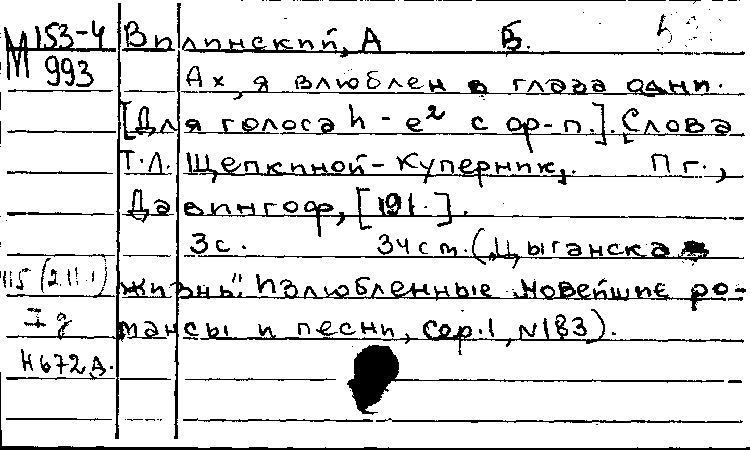 М 153-4 Вилинский, А Б.
993 Ах, я влюблен в глаза одни.
[Для голоса h - e² с ф-п.]. Слова
Т.Л. Щепкиной-Куперник,. Пг.,
Давингоф, [191.].
3с. 34см. („Цыганская
115 (2.11.1) жизнь". Излюбленные новейшие ро-
I д мансы и песни, сер.1, N183).
Н672А.